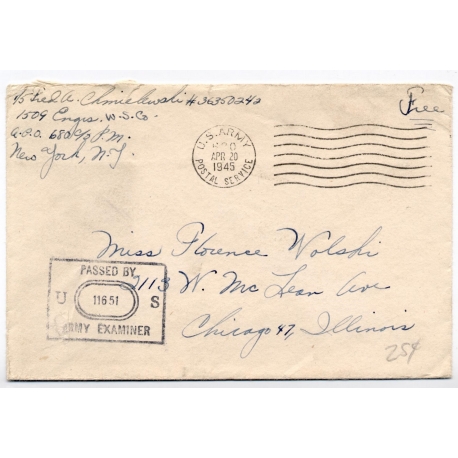 T/5 Fred A. Chmielewski #36350242
1509 Engrs. W.S.Co.
A.P.O. 680 c/o P.M.
New York, N.Y.
Free
U.S. ARMY
APR 20
1945
POSTAL SERVICE
Miss Florence Wolski
2113 W. Mc Lean Ave
Chicago 47, Illinois
PASSED BY
U 11651 S
ARMY EXAMINER
254